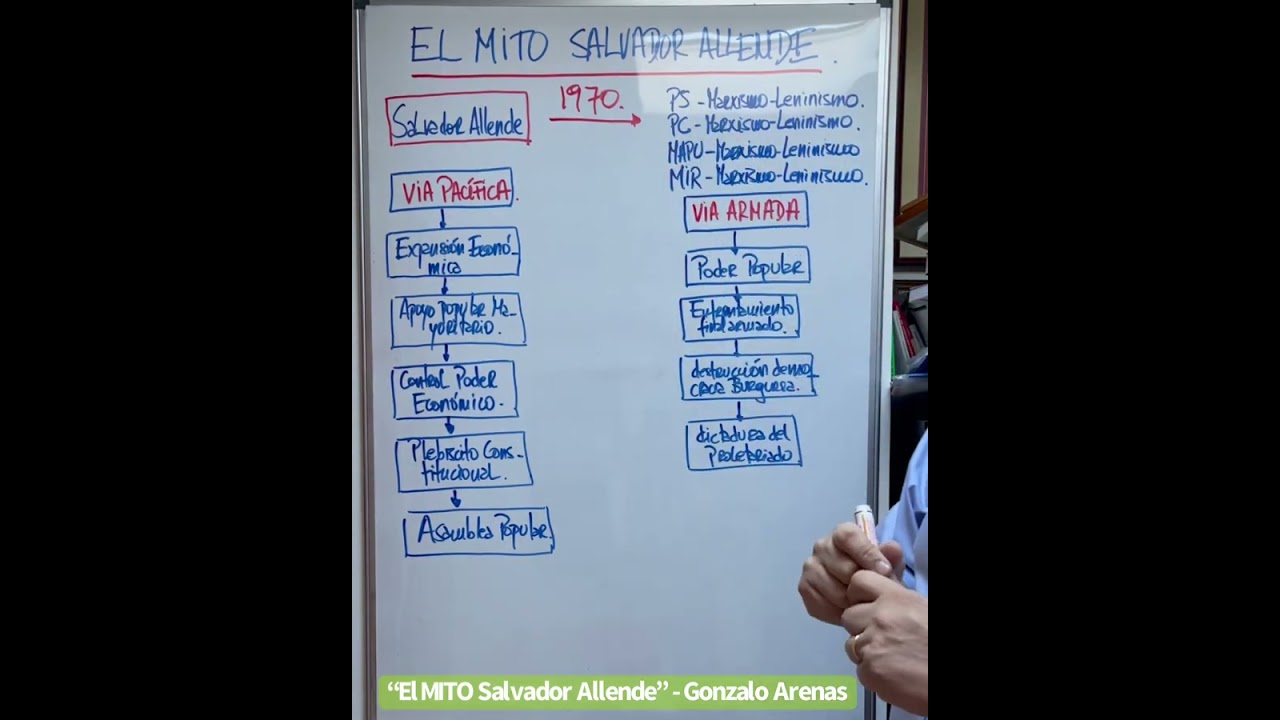 EL MITO SALVADOR ALLENDE.
Salvador Allende
1970.
PS - Marxismo-Leninismo.
PC - Marxismo-Leninismo.
MAPU - Marxismo-Leninismo
MIR - Marxismo-Leninismo.
VIA PACÍFICA.
Expansión Econó-
mica
Apoyo popular Ma-
yoritario.
Control Poder
Económico.
Plebiscito Cons-
titucional.
Asamblea Popular.
VIA ARMADA
Poder Popular
Enfrentamiento
final armado.
destrucción demo-
cracia Burguesa.
dictadura del
Proletariado.
“El MITO Salvador Allende” - Gonzalo Arenas